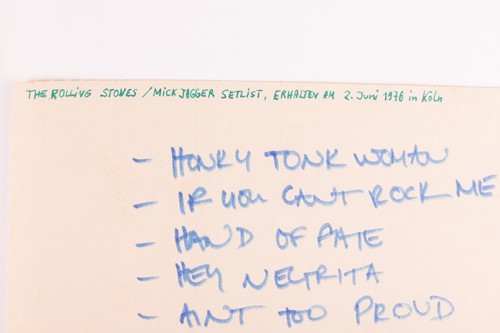 THE ROLLING STONES / MICK JAGGER SETLIST, ERHALTEN AM 2. Juni 1976 in Köln
- HONKY TONK WOMAN
- IF YOU CANT ROCK ME
- HAND OF FATE
- HEY NEGRITA
- AINT TOO PROUD